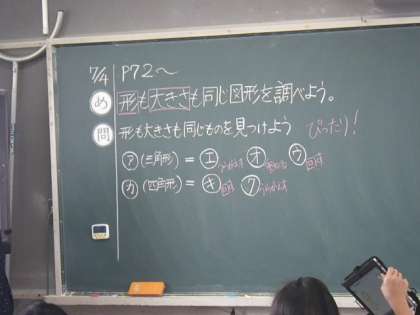 7/4 P72～
め 形も大きさも同じ図形を調べよう。
問 形も大きさも同じものを見つけよう ぴったり！
ア(三角形) = エ オ ウ回す
カ(四角形) = キ回す ク